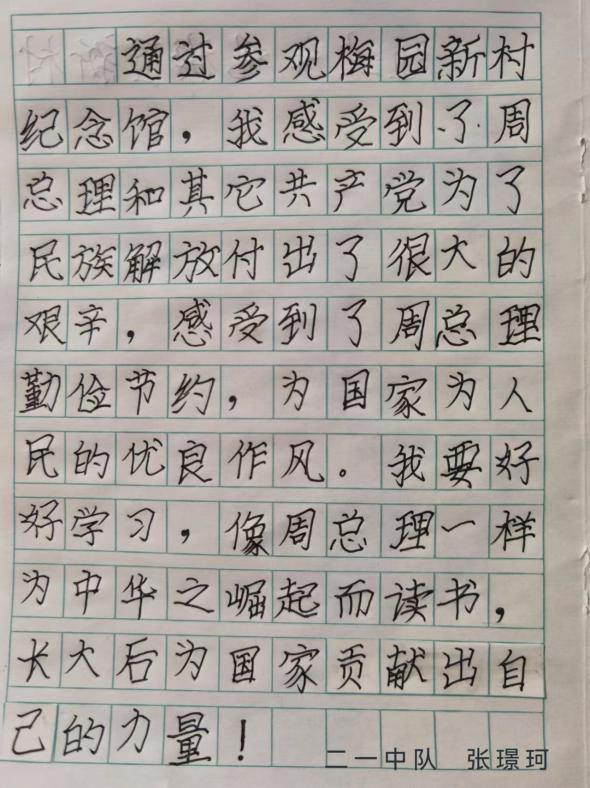 通过参观梅园新村
纪念馆，我感受到了周
总理和其它共产党为了
民族解放付出了很大的
艰辛，感受到了周总理
勤俭节约，为国家为人
民的优良作风。我要好
好学习，像周总理一样
为中华之崛起而读书，
长大后为国家贡献出自
己的力量！
二一中队 张璟珂